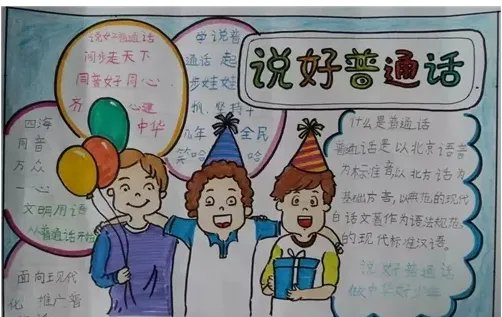 说好普通话
说好普通话
同步走天下
同普好同心
齐 心建
中华
学说普
通话 起
步娃娃
抓 坚持
几年 全民
笑哈 哈
四海
同音
万众
一心
文明用语
从普通话开始
面向现代
化 推广普
什么是普通话
普通话是以北京语音
为标准音以北方话为
基础方言,以典范的现代
白话文著作为语法规范
的现代标准汉语。
说好普通话
做中华好少年